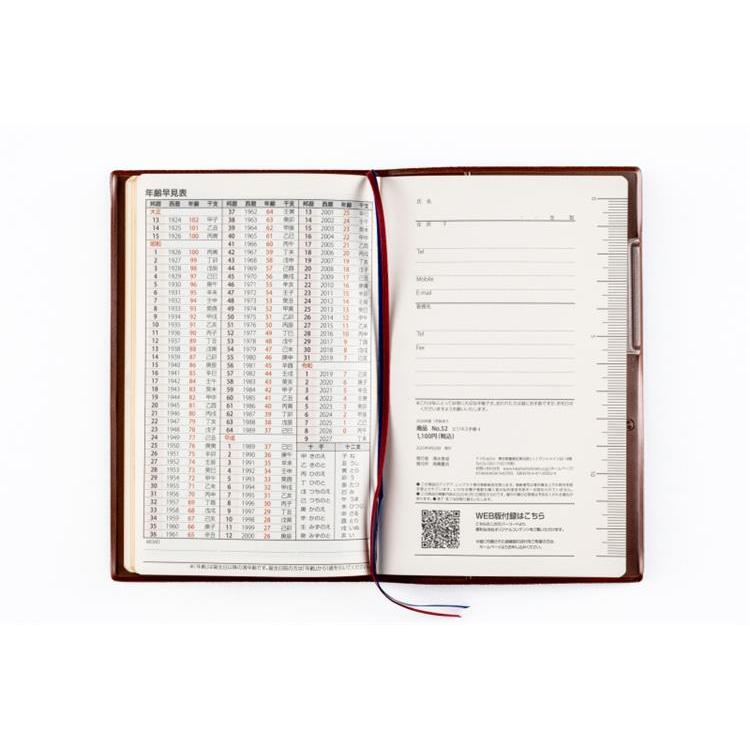 年齢早見表
邦暦 西暦 年齢 干支
大正
13 1924 102 甲子
14 1925 101 乙丑
15 1926 100 丙寅
昭和
1 1926 100 丙寅
2 1927 99 丁卯
3 1928 98 戊辰
4 1929 97 己巳
5 1930 96 庚午
6 1931 95 辛未
7 1932 94 壬申
8 1933 93 癸酉
9 1934 92 甲戌
10 1935 91 乙亥
11 1936 90 丙子
12 1937 89 丁丑
13 1938 88 戊寅
14 1939 87 己卯
15 1940 86 庚辰
16 1941 85 辛巳
17 1942 84 壬午
18 1943 83 癸未
19 1944 82 甲申
20 1945 81 乙酉
21 1946 80 丙戌
22 1947 79 丁亥
23 1948 78 戊子
24 1949 77 己丑
25 1950 76 庚寅
26 1951 75 辛卯
27 1952 74 壬辰
28 1953 73 癸巳
29 1954 72 甲午
30 1955 71 乙未
31 1956 70 丙申
32 1957 69 丁酉
33 1958 68 戊戌
34 1959 67 己亥
35 1960 66 庚子
36 1961 65 辛丑
MEMO
邦暦 西暦 年齢 干支
37 1962 64 壬寅
38 1963 63 癸卯
39 1964 62 甲辰
40 1965 61 乙巳
41 1966 60 丙午
42 1967 59 丁未
43 1968 58 戊申
44 1969 57 己酉
45 1970 56 庚戌
46 1971 55 辛亥
47 1972 54 壬子
48 1973 53 癸丑
49 1974 52 甲寅
50 1975 51 乙卯
51 1976 50 丙辰
52 1977 49 丁巳
53 1978 48 戊午
54 1979 47 己未
55 1980 46 庚申
56 1981 45 辛酉
57 1982 44 壬戌
58 1983 43 癸亥
59 1984 42 甲子
60 1985 41 乙丑
61 1986 40 丙寅
62 1987 39 丁卯
63 1988 38 戊辰
64 1989 37 己巳
平成
1 1989 37 己巳
2 1990 36 庚午
3 1991 35 辛未
4 1992 34 壬申
5 1993 33 癸酉
6 1994 32 甲戌
7 1995 31 乙亥
8 1996 30 丙子
9 1997 29 丁丑
10 1998 28 戊寅
11 1999 27 己卯
12 2000 26 庚辰
邦暦 西暦 年齢 干支
13 2001 25 辛巳
14 2002 24 壬午
15 2003 23 癸未
16 2004 22 甲申
17 2005 21 乙酉
18 2006 20 丙戌
19 2007 19 丁亥
20 2008 18 戊子
21 2009 17 己丑
22 2010 16 庚寅
23 2011 15 辛卯
24 2012 14 壬辰
25 2013 13 癸巳
26 2014 12 甲午
27 2015 11 乙未
28 2016 10 丙申
29 2017 9 丁酉
30 2018 8 戊戌
31 2019 7 己亥
令和
1 2019 7 己亥
2 2020 6 庚子
3 2021 5 辛丑
4 2022 4 壬寅
5 2023 3 癸卯
6 2024 2 甲辰
7 2025 1 乙巳
8 2026 0 丙午
9 2027 丁未
十干 十二支
甲 きのえ 子 ね
乙 きのと 丑 うし
丙 ひのえ 寅 とら
丁 ひのと 卯 う
戊 つちのえ 辰 たつ
己 つちのと 巳 み
庚 かのえ 午 うま
辛 かのと 未 ひつじ
壬 みずのえ 申 さる
癸 みずのと 酉 とり
戌 いぬ
亥 い
氏名
住所 〒
Tel
Mobile
E-mail
勤務先
Tel
Fax
商品 No.52 ビジネス手帳4
1,100円(税込)
WEB版付録はこちら
0
5
10